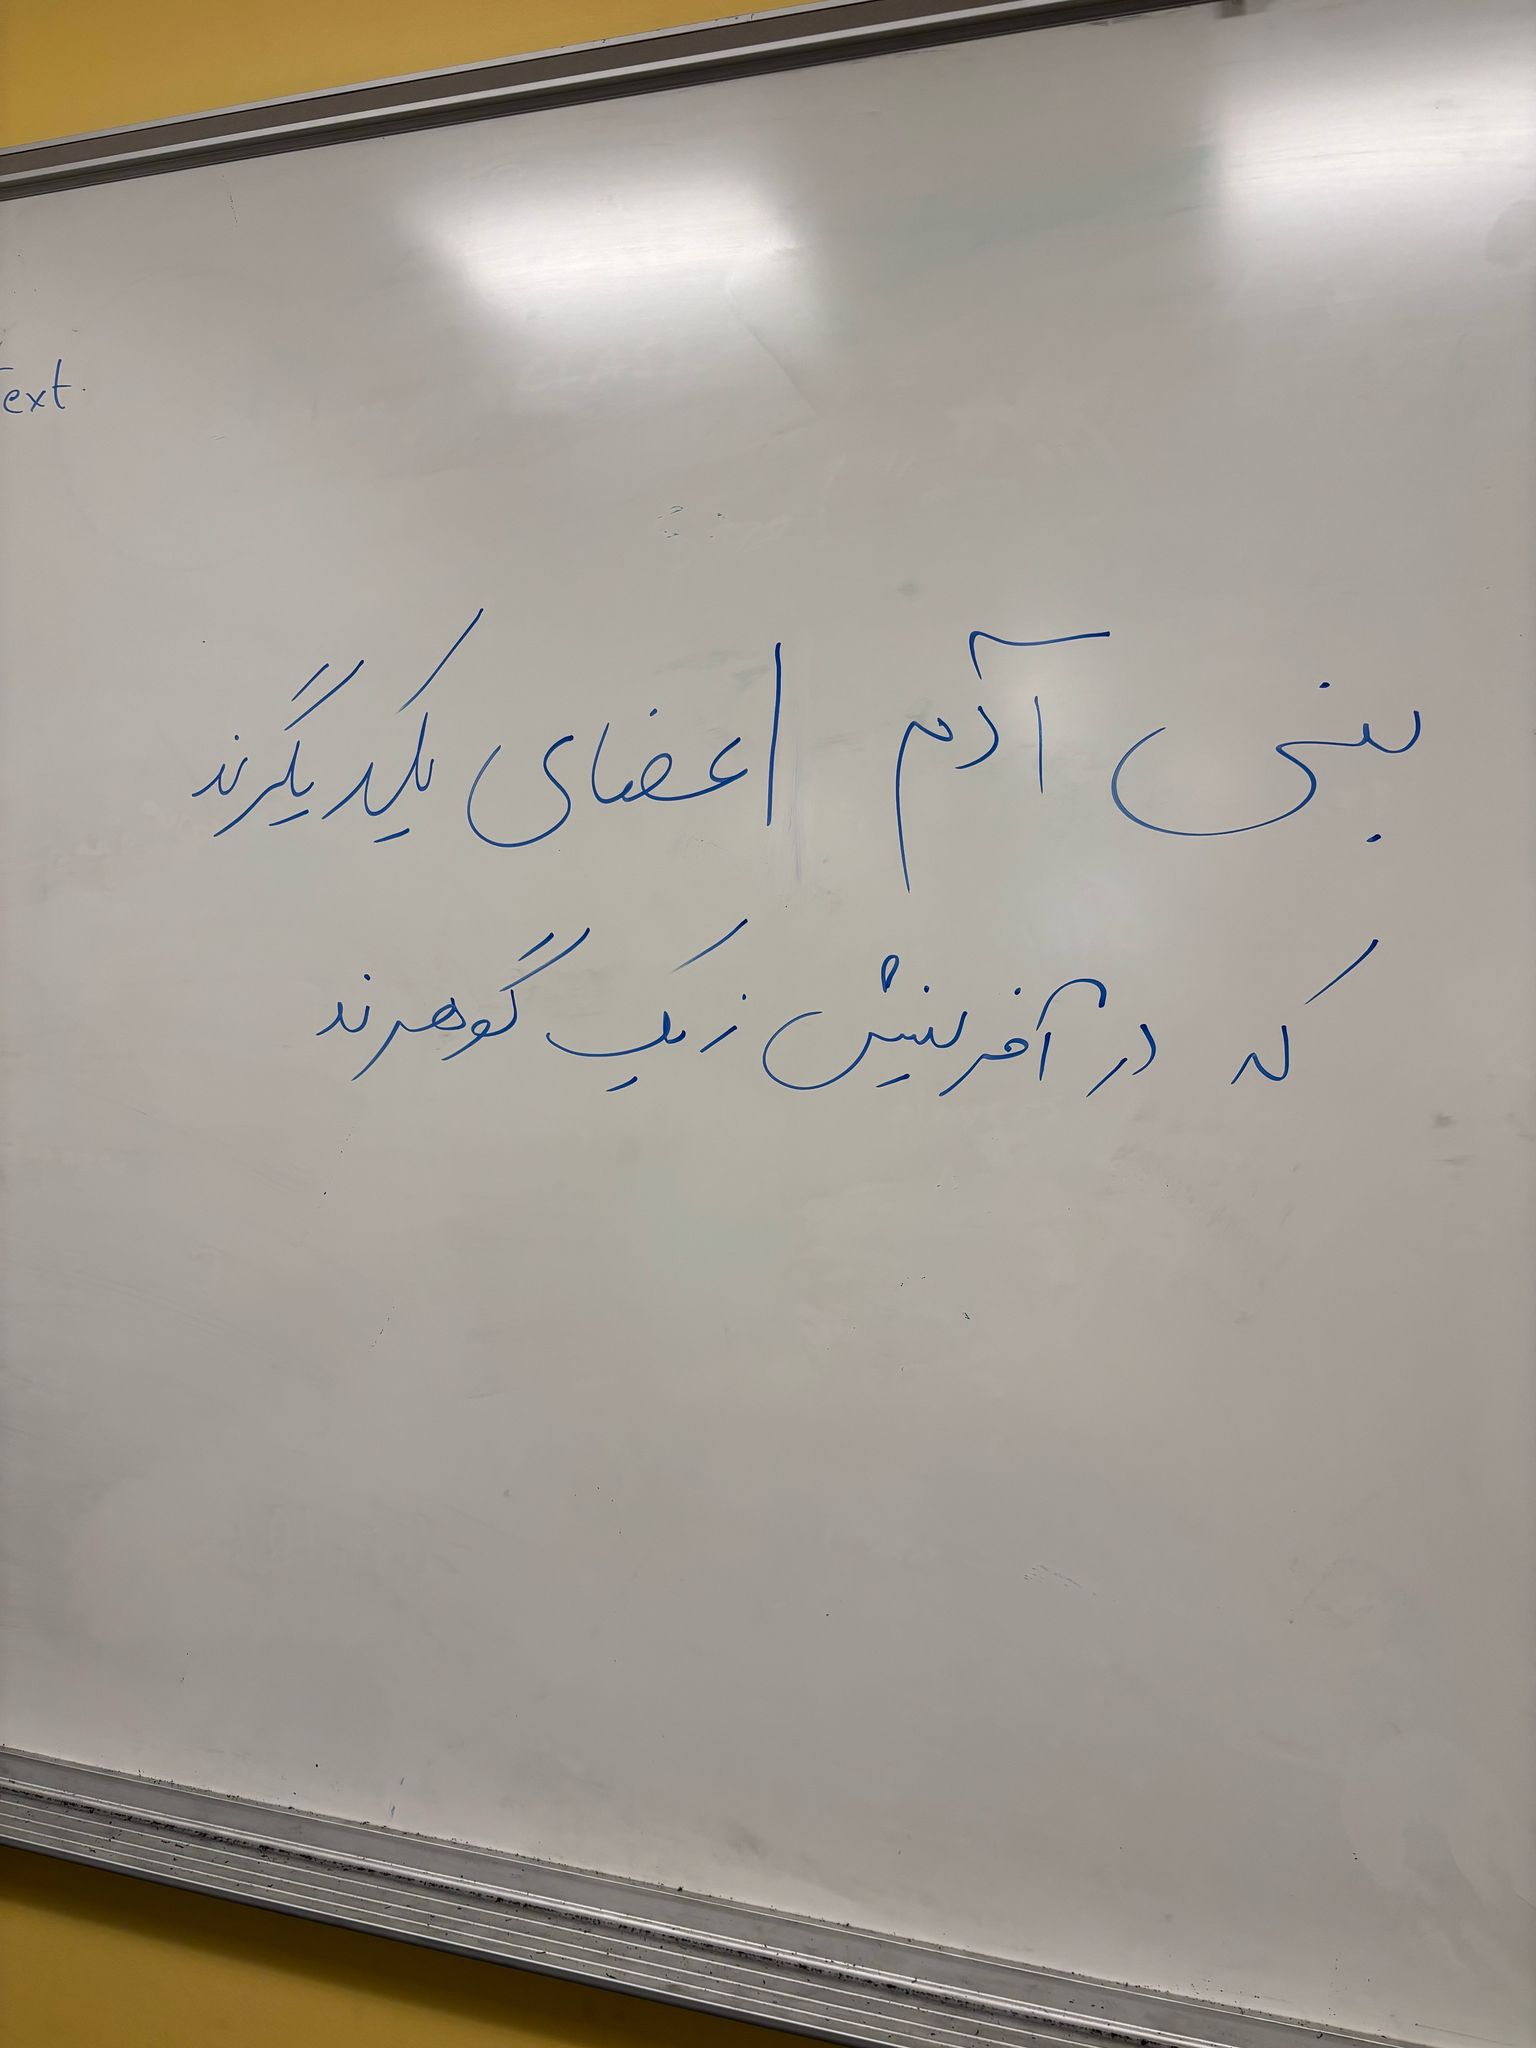 ext.
بنی آدم اعضای یکدیگرند
که در آفرینش ز یک گوهرند